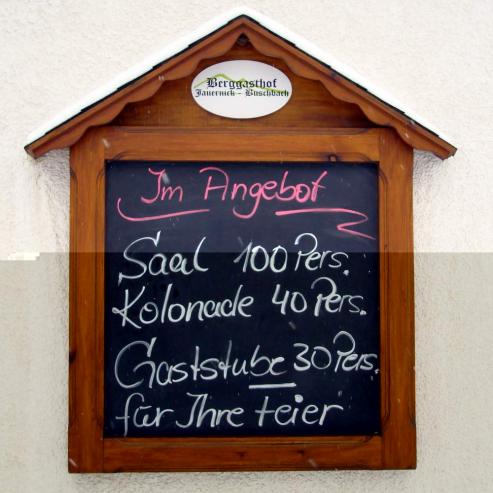 Berggasthof
Jauernick - Buschbach
Im Angebot
Saal 100 Pers.
Kolonade 40 Pers.
Gaststube 30 Pers.
für Ihre Feier